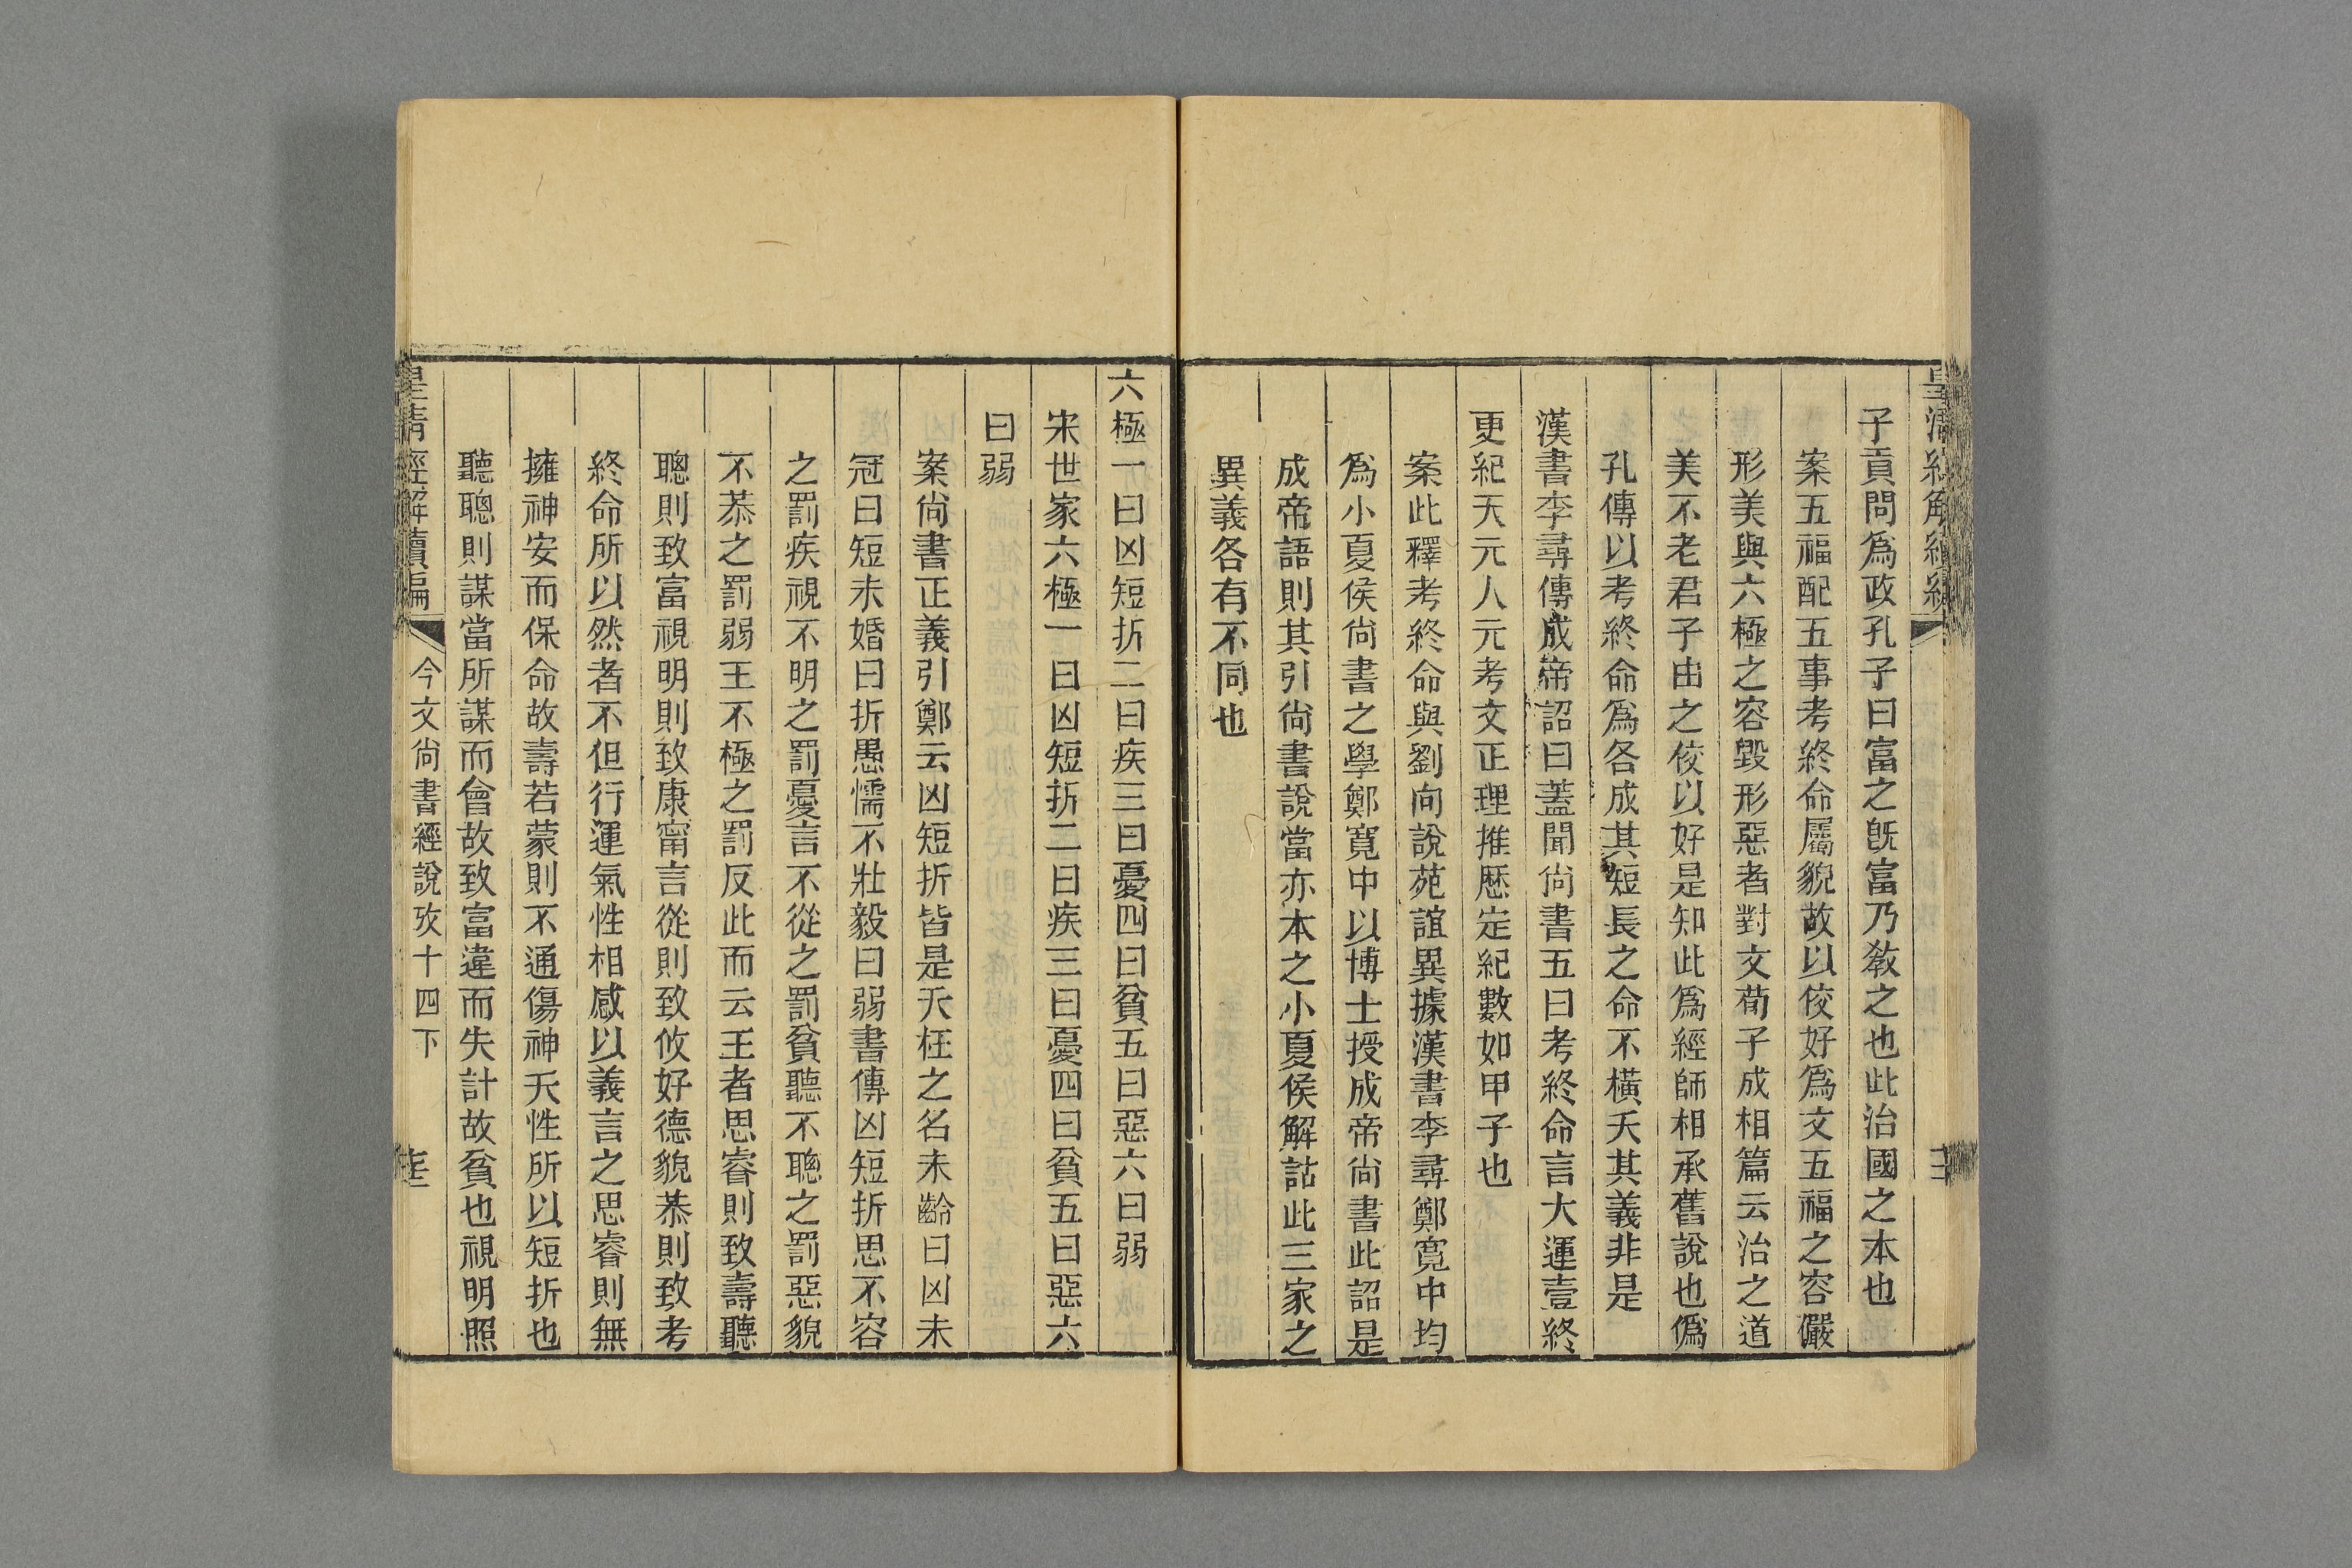 子貢問爲政孔子曰富之旣富乃敎之也此治國之本也
案五福配五事考終命屬貌故以佼好爲文五福之容儼
形美與六極之容毀形惡者對文荀子成相篇云治之道
美不老君子由之佼以好是知此爲經師相承舊說也僞
孔傳以考終命爲各成其短長之命不橫夭其義非是
漢書李尋傳成帝詔曰蓋聞尙書五曰考終命言大運壹終
更紀天元人元考文正理推厯定紀數如甲子也
案此釋考終命與劉向說苑誼異據漢書李尋鄭寬中均
爲小夏侯尙書之學鄭寬中以博士授成帝尙書此詔是
成帝語則其引尙書說當亦本之小夏侯解詁此三家之
異義各有不同也
六極一曰凶短折二曰疾三曰憂四曰貧五曰惡六曰弱
宋世家六極一曰凶短折二曰疾三曰憂四曰貧五曰惡六
曰弱
案尙書正義引鄭云凶短折皆是夭枉之名未齠曰凶未
冠曰短未婚曰折愚懦不壯毅曰弱書傳凶短折思不容
之罰疾視不明之罰憂言不從之罰貧聽不聰之罰惡貌
不恭之罰弱王不極之罰反此而云王者思睿則致壽聽
聰則致富視明則致康甯言從則致攸好德貌恭則致考
終命所以然者不但行運氣性相感以義言之思睿則無
擁神安而保命故壽若蒙則不通傷神夭性所以短折也
聽聰則謀當所謀而會故致富違而失計故貧也視明照
皇淸經解續編　今文尙書經說攷十四下